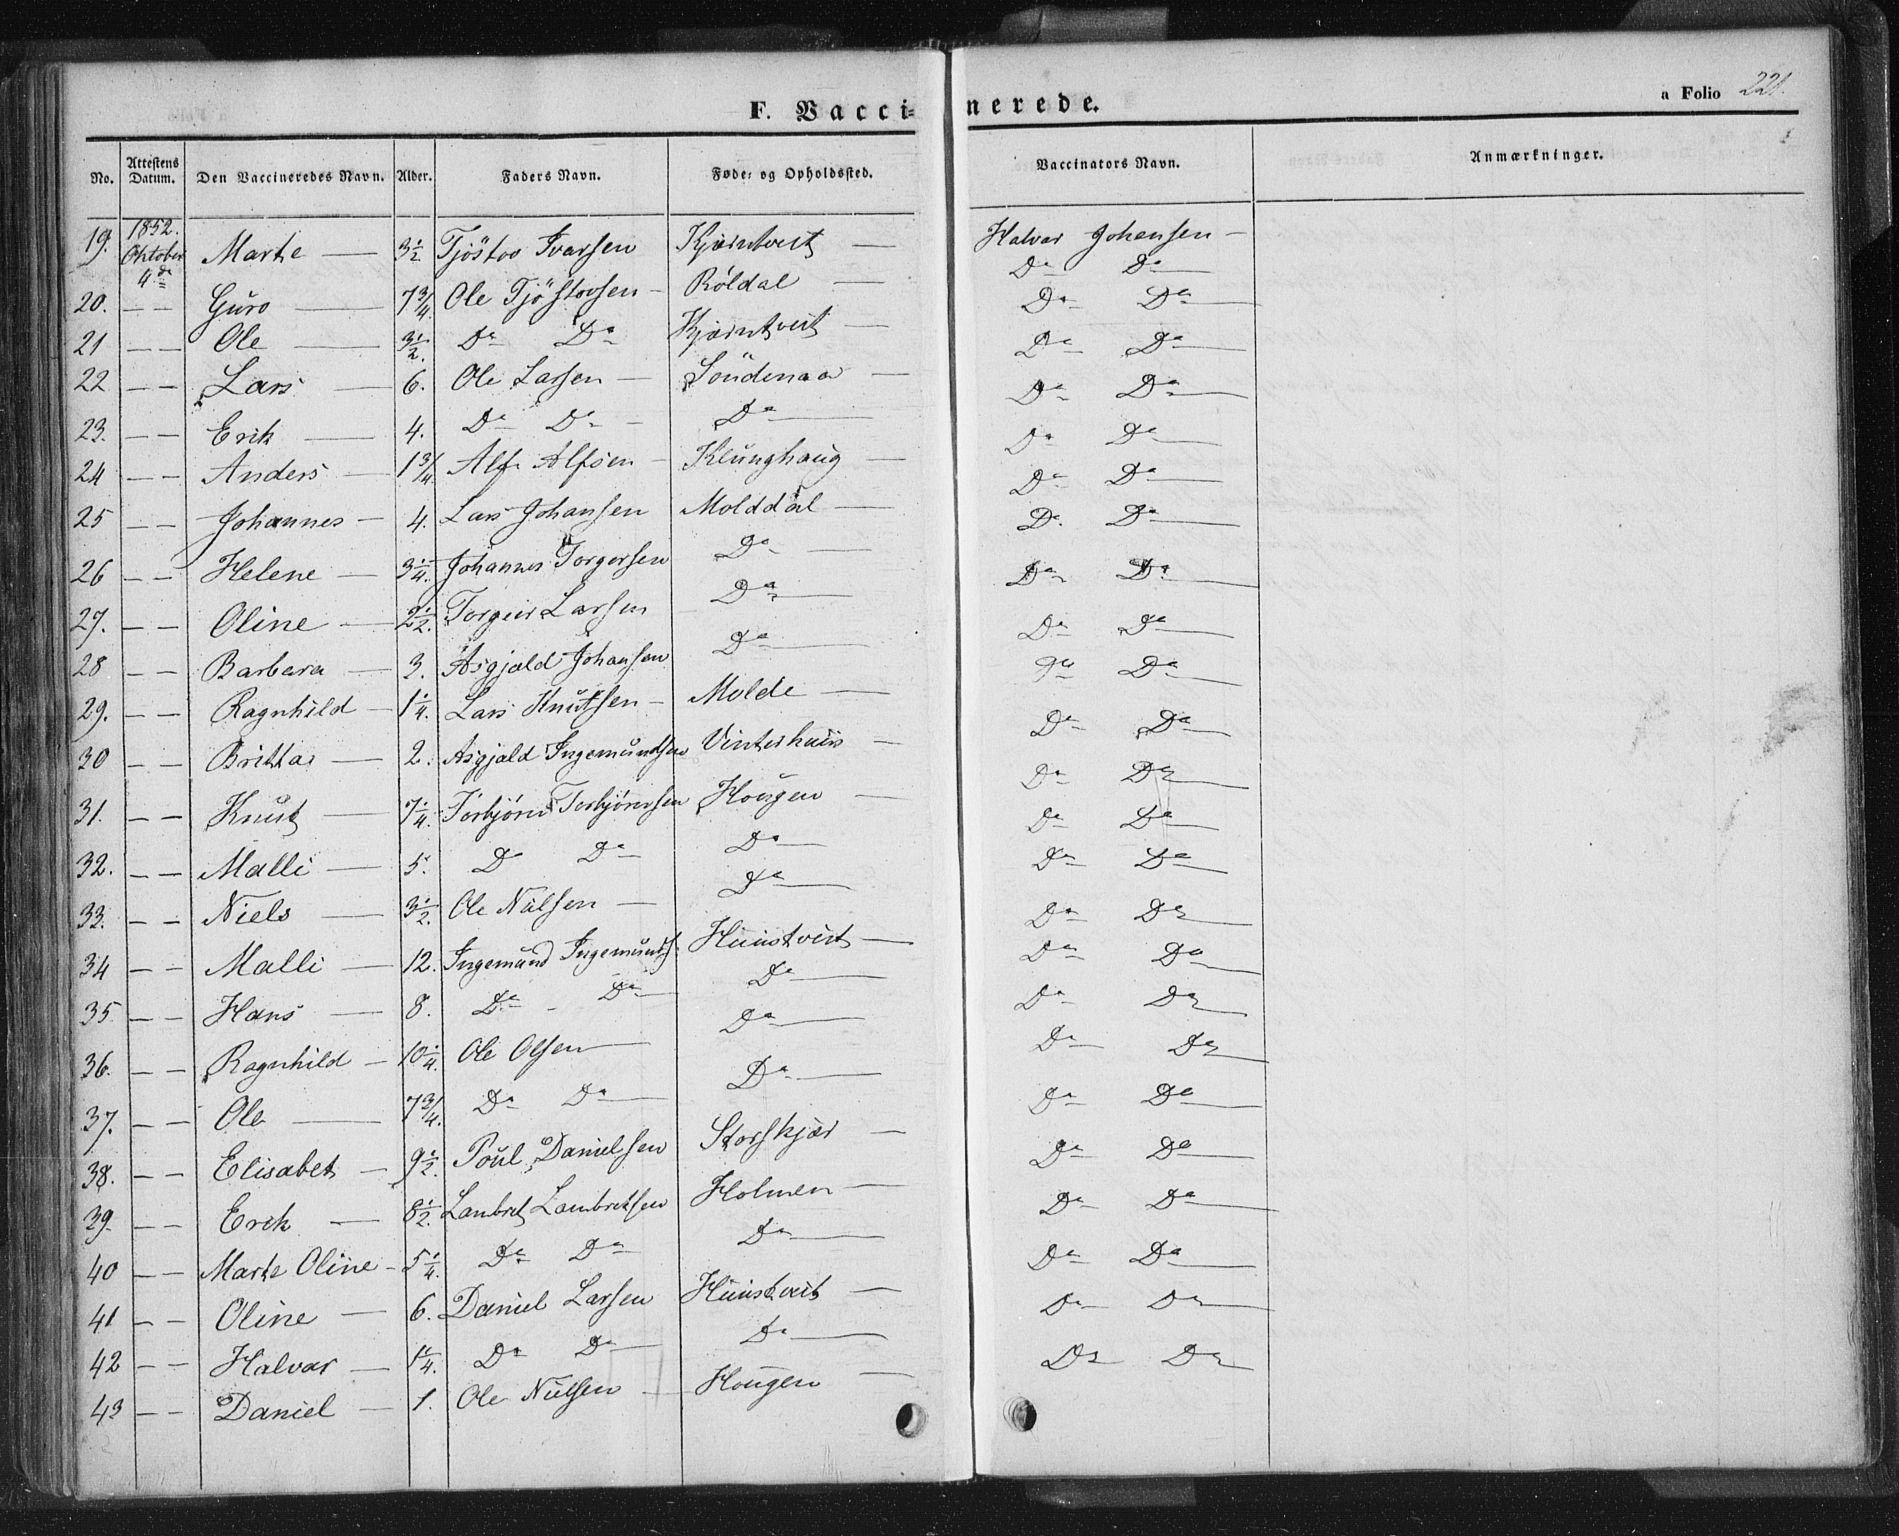 F. Vaccinerede.
a Folio 221.
No. Attestens Datum. Den Vaccineredes Navn. Alder. Faders Navn. Føde- og Opholdssted. Vaccinators Navn. Anmærkninger.
19. 1852. Oktober 4de Marte — 3 1/2 Tjöstov Ivarsen Kjærntveit — Halvar Johansen —
20. — — Guro — 7 3/4 Ole Tjöstovsen — Röldal — Do Do —
21 — — Ole — 3 1/2. Do Do Kjærntveit — Do Do —
22 — — Lars — 6. Ole Larsen — Söndenaa — Do Do —
23. — — Erik — 4. Do Do — Do — Do Do —
24 — — Anders — 1 3/4 Alf Alfsen — Klunghaug — Do Do —
25 — — Johannes — 4. Lars Johansen Molddal — Do Do —
26 — — Helene — 3 1/4. Johannes Torgersen Do — Do. Do —
27. — — Oline — 2 1/2. Torgier Larsen Do — Do Do —
28 — — Barbara — 3. Asgjald Johansen Do — Do Do —
29. — — Ragnhild — 1 1/4. Lars Knutsen — Molde — Do Do —
30 — — Britta — 2. Asgjald Ingemundsen Vinterhuus — Do Do —
31. — — Knut — 7 1/4. Torbjörn Torbjörnsen Hougen — Do Do
32. — — Malli — 5. Do Do — Do — Do Do —
33. — — Niels — 3 1/2. Ole Nielsen — Do — Do Do —
34 — — Malli — 12. Ingemund Ingemunds. Huustveit — Do Do
35 — — Hans — 8. Do — Do — Do — Do Do —
36. — — Ragnhild — 10 1/4. Ole Olsen — Do — Do Do
37. — — Ole — 7 3/4. Do Do — Do — Do Do
38. — — Elisabet — 9 1/2. Poul Danielsen Storskjær — Do Do —
39. — — Erik — 8 1/2. Lambret Lambretsen Holmen — Do Do —
40 — — Marte Oline — 5 1/4. Do Do Do — Do Do —
41 — — Oline — 6. Daniel Larsen Huustveit — Do Do —
42 — — Halvar — 1 1/4. Do Do — Do — Do Do —
43 — — Daniel — 1. Ole Nielsen — Hougen — Do Do —